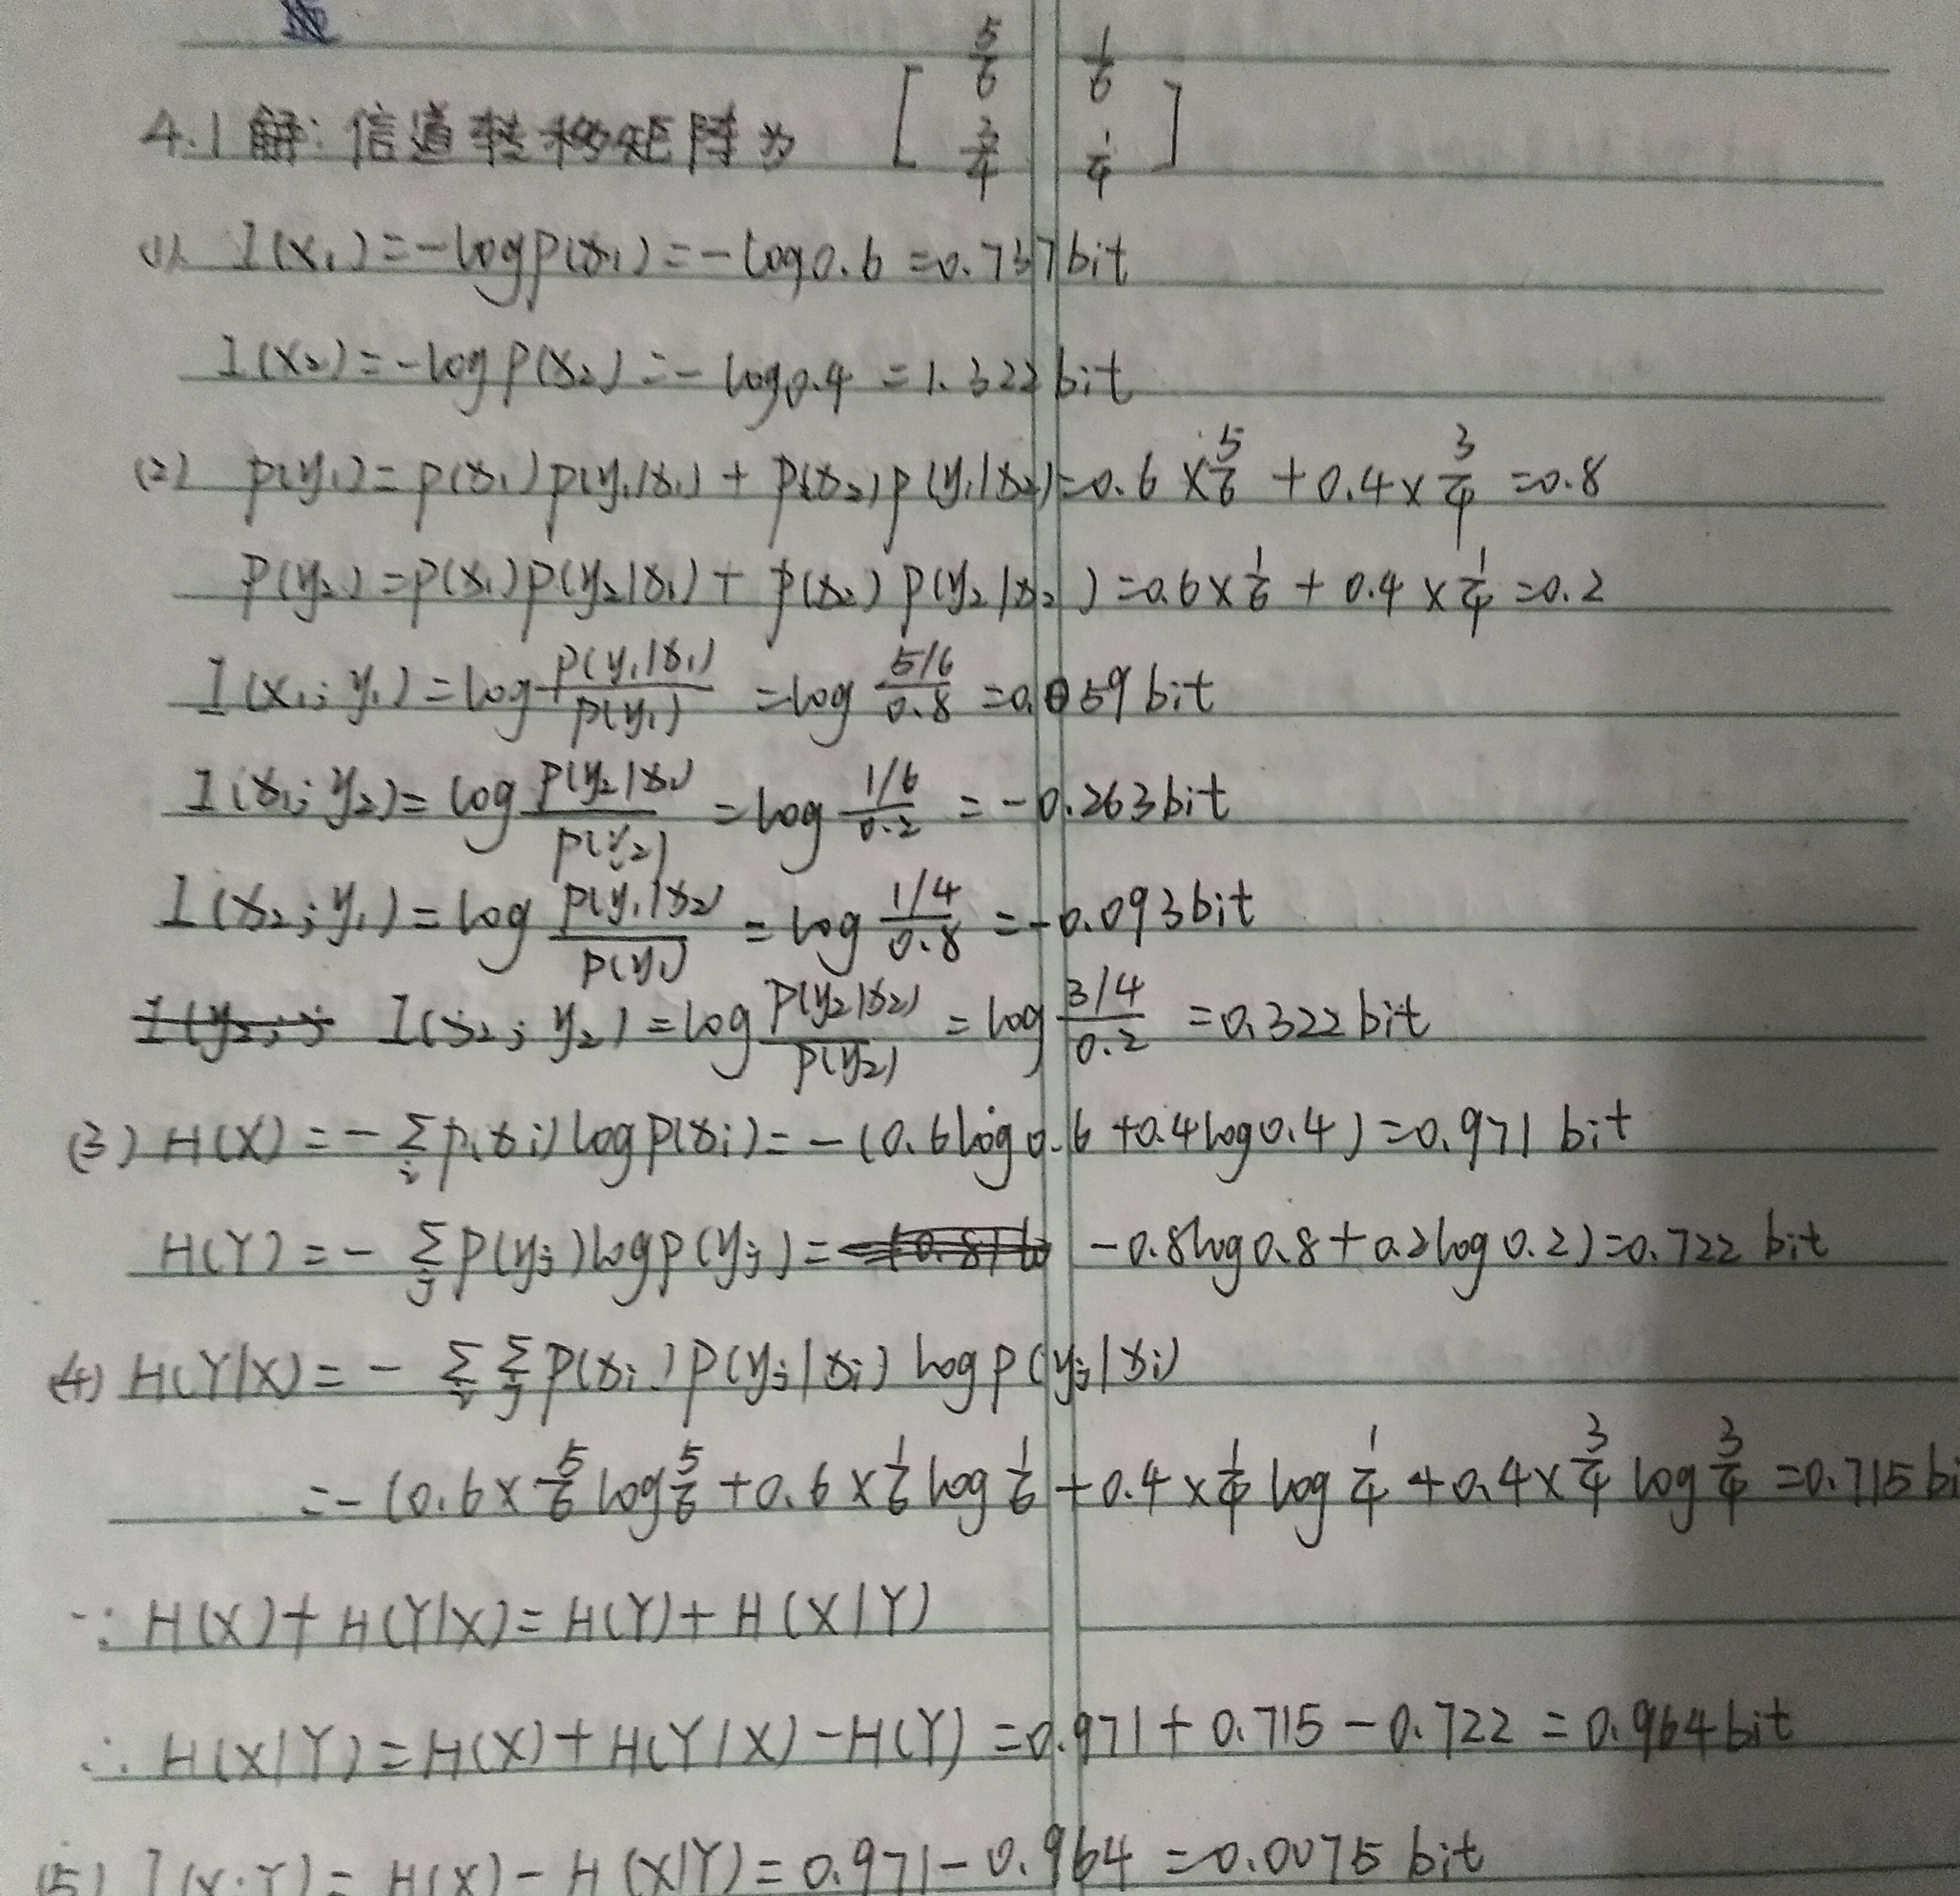 4.1 解: 信道转移矩阵为 [ 5/6 1/6
3/4 1/4 ]
(1) I(x₁)=-logp(x₁)=-log0.6=0.737bit
I(x₂)=-logp(x₂)=-log0.4=1.322bit
(2) p(y₁)=p(x₁)p(y₁|x₁)+p(x₂)p(y₁|x₂)=0.6×5/6+0.4×3/4=0.8
p(y₂)=p(x₁)p(y₂|x₁)+p(x₂)p(y₂|x₂)=0.6×1/6+0.4×1/4=0.2
I(x₁;y₁)=log p(y₁|x₁)/p(y₁)=log (5/6)/0.8=0.059bit
I(x₁;y₂)=log p(y₂|x₁)/p(y₂)=log (1/6)/0.2=-0.263bit
I(x₂;y₁)=log p(y₁|x₂)/p(y₁)=log (1/4)/0.8=-0.093bit
I(x₂;y₂)=log p(y₂|x₂)/p(y₂)=log (3/4)/0.2=0.322bit
(3) H(X)=-∑ᵢp(xᵢ)logp(xᵢ)=-(0.6log0.6+0.4log0.4)=0.971 bit
H(Y)=-∑ⱼp(yⱼ)logp(yⱼ)=-0.8log0.8+0.2log0.2)=0.722 bit
(4) H(Y|X)=-∑ᵢ∑ⱼp(xᵢ)p(yⱼ|xᵢ)logp(yⱼ|xᵢ)
=-(0.6×5/6log5/6+0.6×1/6log1/6+0.4×1/4log1/4+0.4×3/4log3/4=0.715bi
∵ H(X)+H(Y|X)=H(Y)+H(X|Y)
∴ H(X|Y)=H(X)+H(Y|X)-H(Y)=0.971+0.715-0.722=0.964bit
(5) I(X;Y)=H(X)-H(X|Y)=0.971-0.964=0.0075 bit